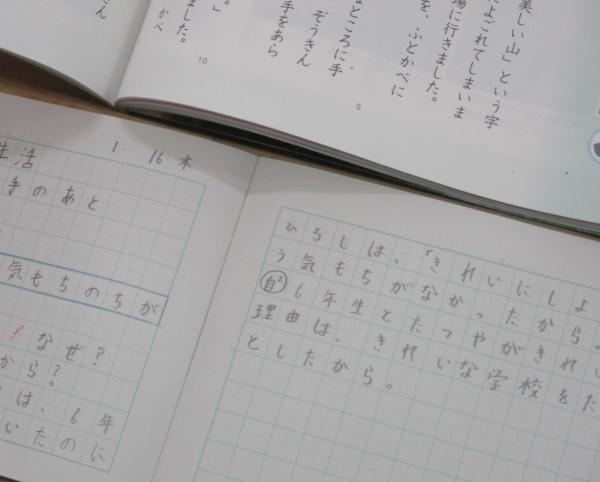 美しい山」という字
よごれてしまいま
場に行きました。
を、ふとかべに
なところに、手
ぞうきん
手をあら
5
10
。」
ました。
かべ
さん
生活
1. 16. 木
手のあと
気もちのちが
!なぜ?
から?
は、6年
いたのに
ひろしは、「きれいにしよ
う気もちがなかったから。
自² 6年生とたつやがきれい
理由は、きれいな学校をた
としたから。